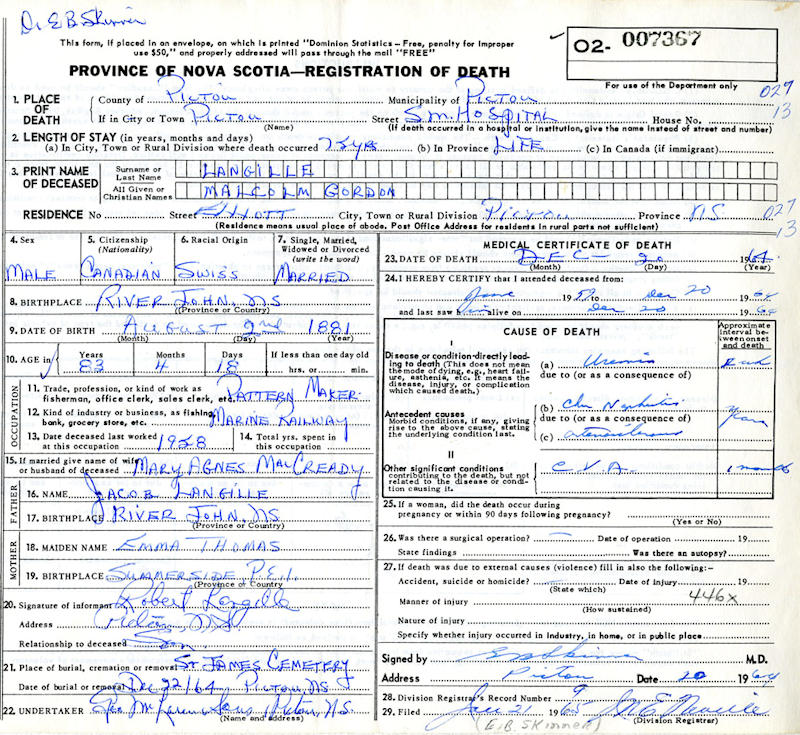 Dr E B Skinner
This form, if placed in an envelope, on which is printed "Dominion Statistics - Free, penalty for improper
use $50," and properly addressed will pass through the mail "FREE"
O2- 007367
PROVINCE OF NOVA SCOTIA—REGISTRATION OF DEATH
For use of the Department only
027
13
1. PLACE OF DEATH
County of PICTOU Municipality of PICTOU
If in City or Town PICTOU Street S.M. HOSPITAL House No.
(Name) (If death occurred in a hospital or institution, give the name instead of street and number)
2. LENGTH OF STAY (in years, months and days)
(a) In City, Town or Rural Division where death occurred 75 yrs (b) In Province LIFE (c) In Canada (if immigrant)
3. PRINT NAME OF DECEASED
Surname or Last Name LANGILLE
All Given or Christian Names MALCOLM GORDON
RESIDENCE No Street ELLIOTT City, Town or Rural Division PICTOU Province N.S.
027
13
(Residence means usual place of abode. Post Office Address for residents in rural parts not sufficient)
4. Sex MALE
5. Citizenship (Nationality) CANADIAN
6. Racial Origin SWISS
7. Single, Married, Widowed or Divorced (write the word) MARRIED
8. BIRTHPLACE RIVER JOHN, NS
(Province or Country)
9. DATE OF BIRTH AUGUST 2nd 1881
(Month) (Day) (Year)
10. AGE in Years 83 Months 4 Days 18 If less than one day old hrs. or min.
OCCUPATION
11. Trade, profession, or kind of work as fisherman, office clerk, sales clerk, etc. PATTERN MAKER
12. Kind of industry or business, as fishing, bank, grocery store, etc. MARINE RAILWAY
13. Date deceased last worked at this occupation 1958
14. Total yrs. spent in this occupation
15. If married give name of wife or husband of deceased MARY AGNES MacCREADY
FATHER
16. NAME JACOB LANGILLE
17. BIRTHPLACE RIVER JOHN, NS
(Province or Country)
MOTHER
18. MAIDEN NAME EMMA THOMAS
19. BIRTHPLACE SUMMERSIDE P.E.I.
(Province of Country
20. Signature of informant Robert Langille
Address
Relationship to deceased Son
21. Place of burial, cremation or removal ST JAMES CEMETERY
Date of burial or removal Dec 22/64 PICTOU, NS
22. UNDERTAKER Geo McLaren Sons Pictou N.S.
(Name and address)
MEDICAL CERTIFICATE OF DEATH
23. DATE OF DEATH DEC- 20 1964
(Month) (Day) (Year)
24. I HEREBY CERTIFY that I attended deceased from:
June 1959 to Dec 20 1964
and last saw him alive on Dec 20 1964
CAUSE OF DEATH
Approximate interval between onset and death
I
Disease or condition directly leading to death (This does not mean the mode of dying, e.g., heart failure, asthenia, etc. It means the disease, injury, or complication which caused death.)
(a) Uremia
due to (or as a consequence of)
Antecedent causes
Morbid conditions, if any, giving rise to the above cause, stating the underlying condition last.
(b) Chr Nephritis years
due to (or as a consequence of)
(c) arteriosclerosis
II
Other significant conditions contributing to the death, but not related to the disease or condition causing it.
C.V.A.
25. If a woman, did the death occur during pregnancy or within 90 days following pregnancy?
(Yes or No)
26. Was there a surgical operation? — Date of operation 19
State findings Was there an autopsy?
27. If death was due to external causes (violence) fill in also the following:—
Accident, suicide or homicide? — Date of injury 19
(State which)
Manner of injury 446x
(How sustained)
Nature of injury
Specify whether injury occurred in industry, in home, or in public place
Signed by E B Skinner M.D.
Address Pictou Date 20 1964
28. Division Registrar's Record Number 9
29. Filed Jan 21 1965
(Division Registrar)
(E.B. SKINNER)